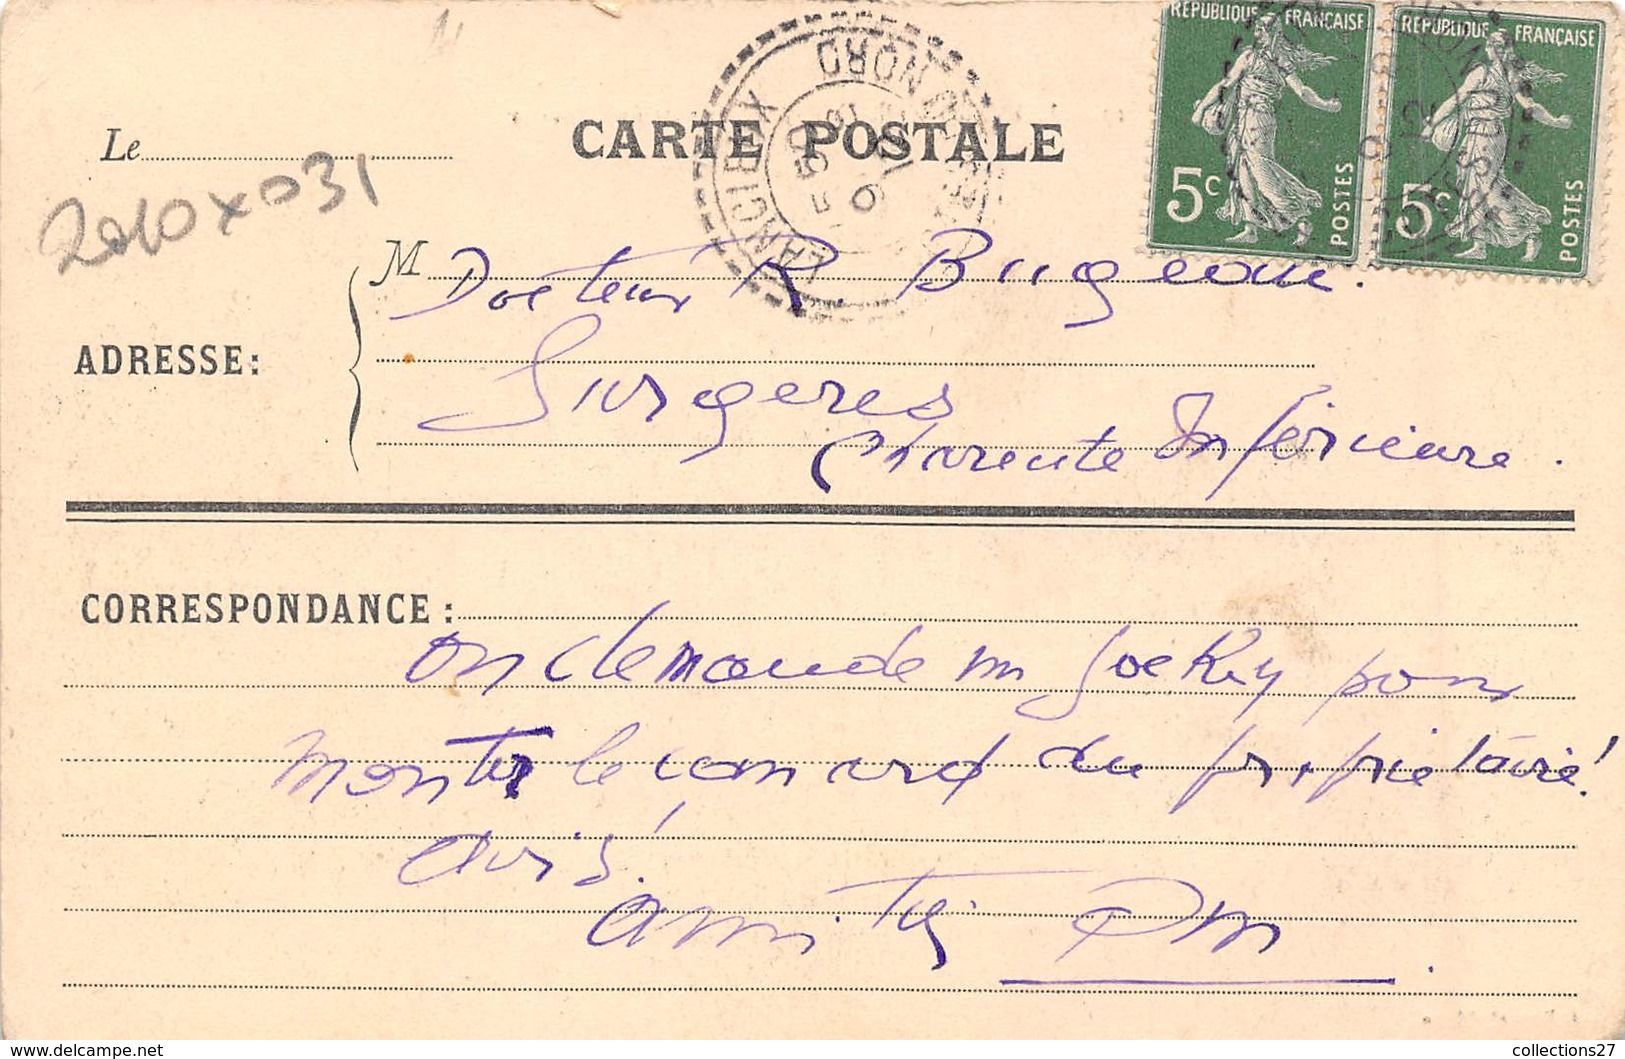 RÉPUBLIQUE FRANÇAISE
RÉPUBLIQUE FRANÇAISE
5c POSTES
5c POSTES
LANCIEUX
DU NORD
Le
CARTE POSTALE
2010x031
M Docteur R. Bugeau.
ADRESSE:
Surgeres
Charente Inférieure.
CORRESPONDANCE:
on demande un Jockey pour
Monter le canard du propriétaire!
avis!
amitiés
collections27